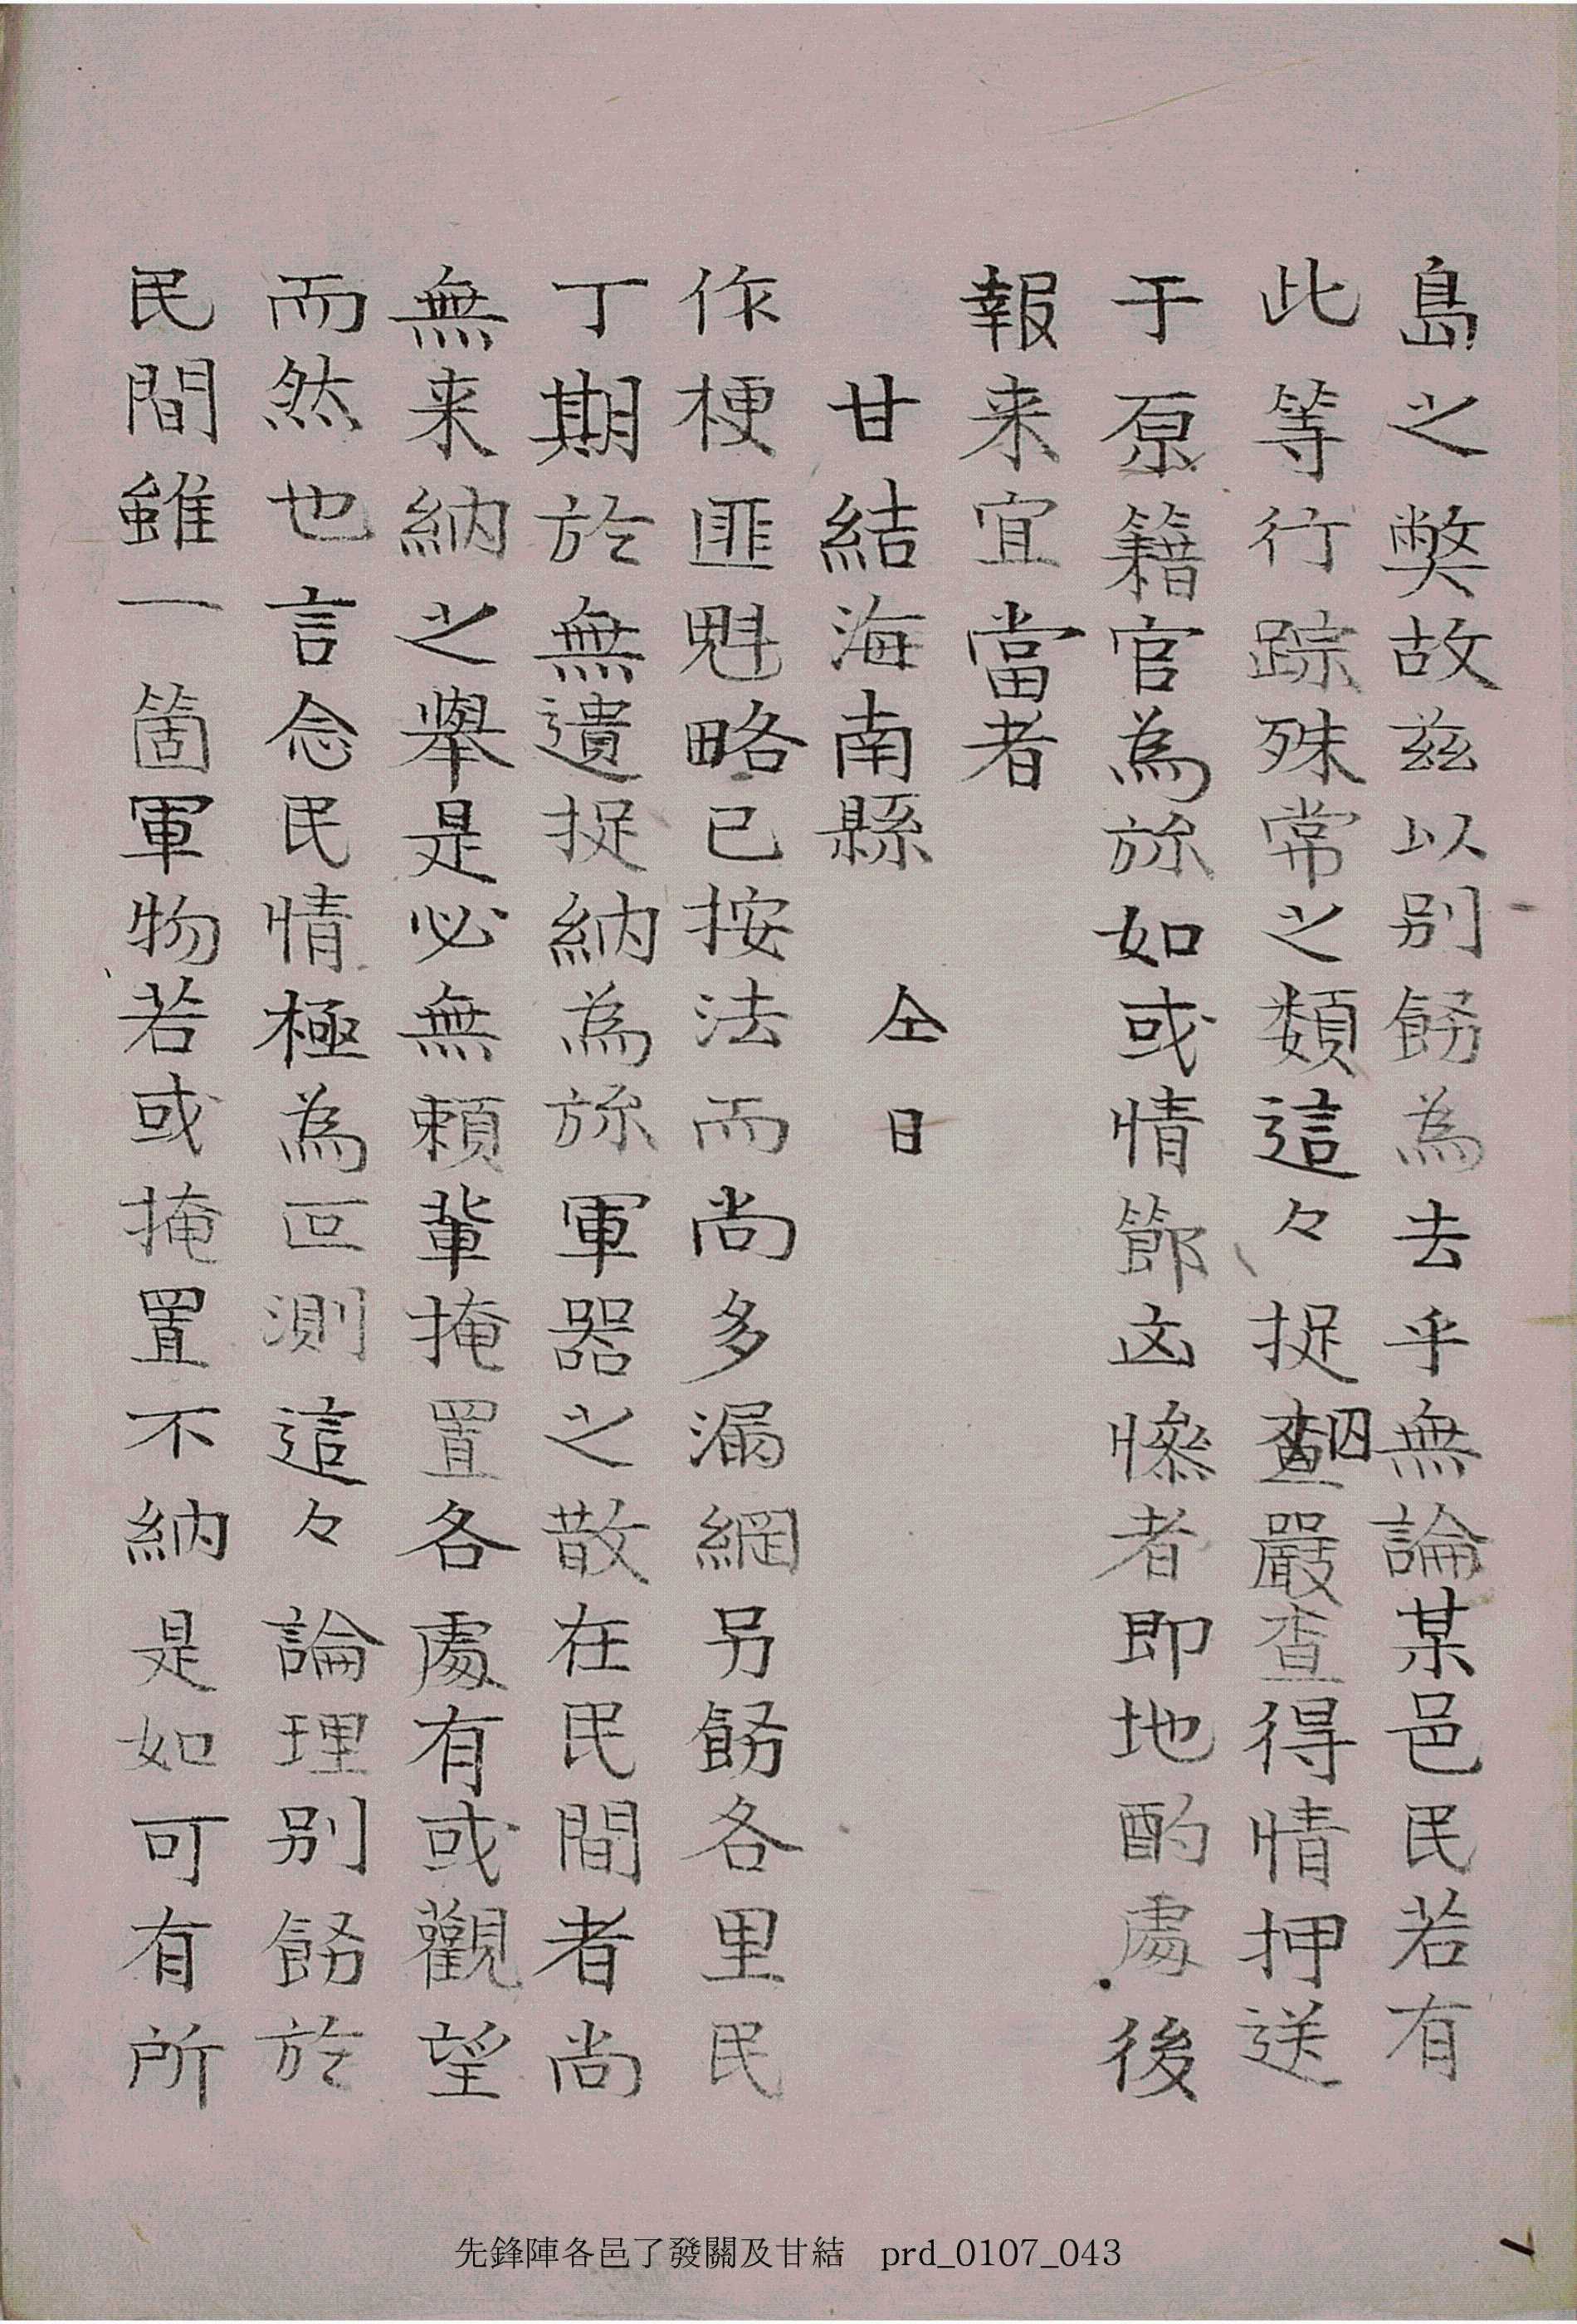 島之獘故玆以别飭為去乎無論某邑民若有
此等行踪殊常之類這々捉囚嚴查得情押送
于原籍官為旀如或情節凶慘者即地酌處後
報来宜當者
甘結海南縣 仝日
作梗匪魁略已按法而尚多漏網另飭各里民
丁期於無遺捉納為旀軍器之散在民間者尚
無来納之擧是必無賴輩掩置各處有或觀望
而然也言念民情極為叵測這々論理别飭於
民間雖一箇軍物若或掩置不納是如可有所
先鋒陣各邑了發關及甘結 prd_0107_043